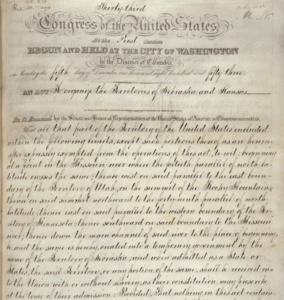 Thirty third
Congress of the United States
At the First Session
BEGUN AND HELD AT THE CITY OF WASHINGTON
in the District of Columbia
on Monday the fifth day of December one thousand eight hundred and fifty three.
AN ACT To organize the Territories of Nebraska and Kansas.
Be it Enacted by the Senate and House of Representatives of the United States of America in Congress assembled,
That all that part of the Territory of the United States included
within the following limits, except such portions thereof as are herein
after expressly exempted from the operations of this act, to wit: beginning
at a point in the Missouri river where the fortieth parallel of north la-
titude crosses the same; thence west on said parallel to the east boun-
dary of the Territory of Utah, on the summit of the Rocky Mountains;
thence on said summit northward to the forty-ninth parallel of north
latitude; thence east on said parallel to the western boundary of the Ter-
ritory of Minnesota; thence southward on said boundary to the Missouri
river; thence down the main channel of said river to the place of beginning,
be, and the same is hereby, created into a temporary government by the
name of the Territory of Nebraska; and when admitted as a State or
States, the said Territory, or any portion of the same, shall be received into
the Union with or without slavery, as their constitution may prescribe
at the time of their admission: Provided, That nothing in this act contain-